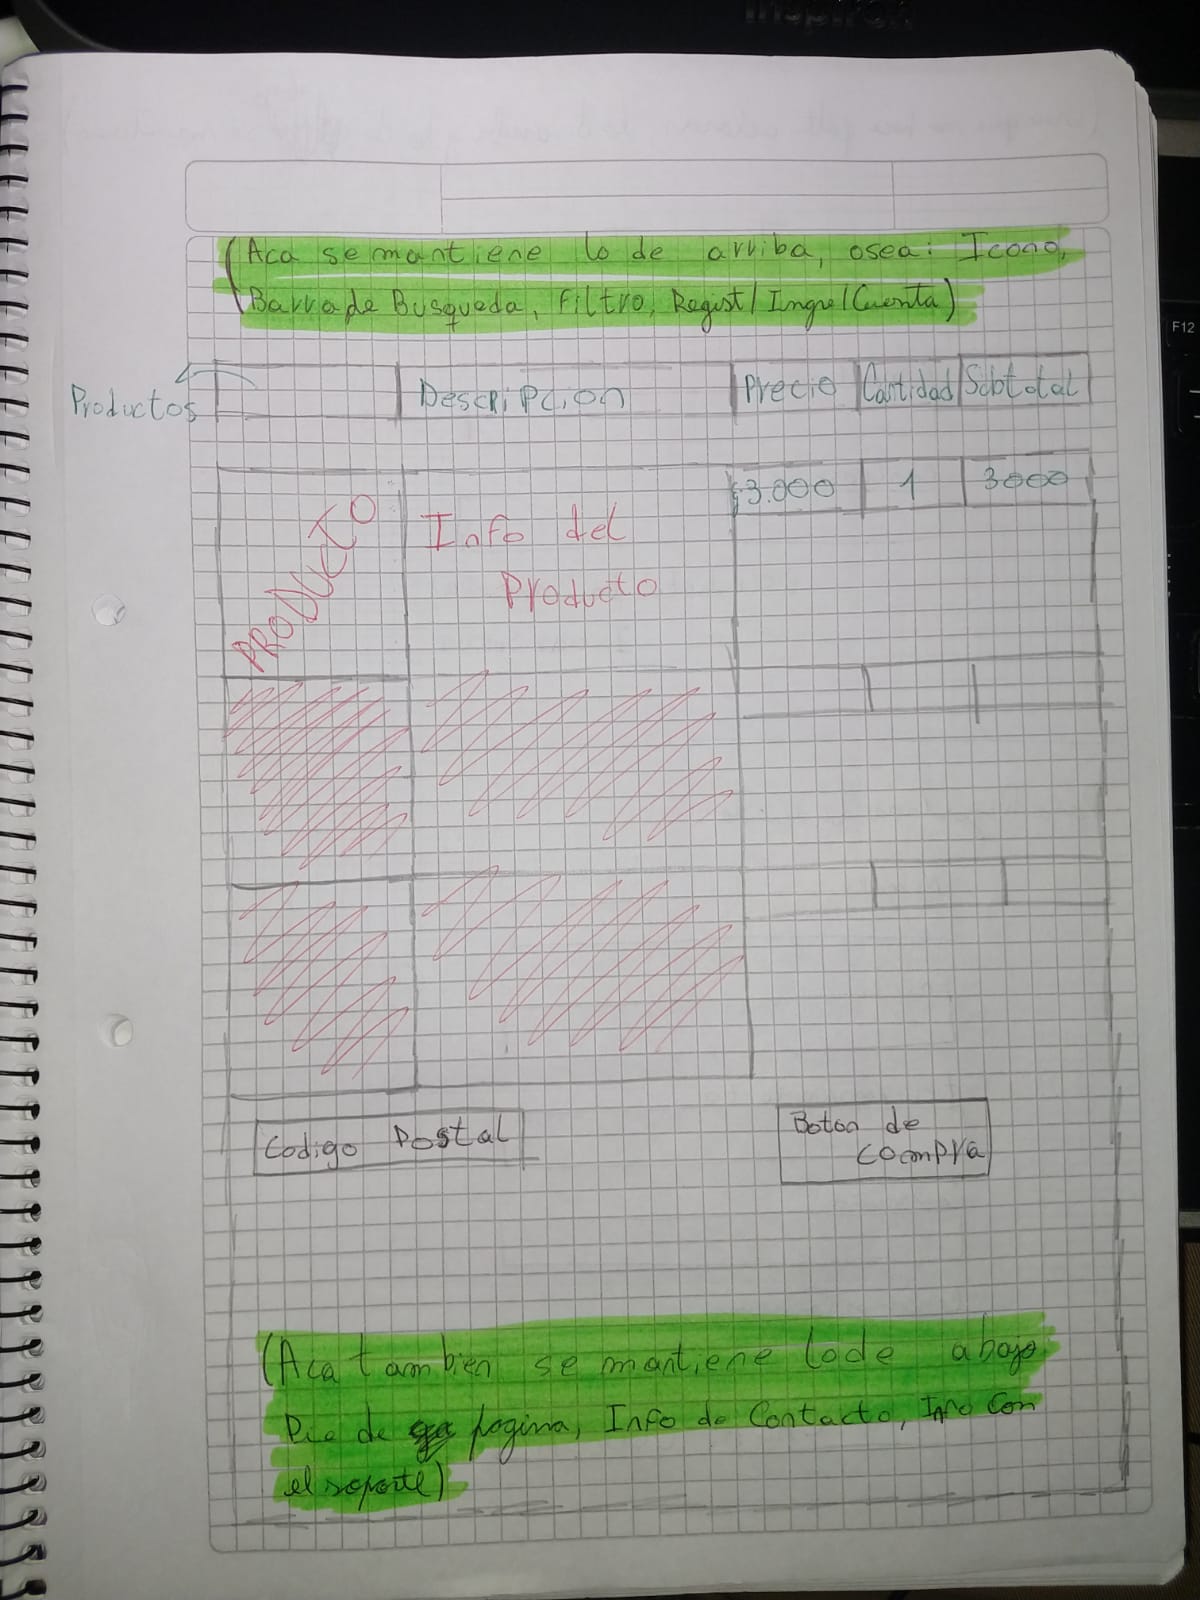 (Aca se mantiene lo de arriba, osea: Icono,
Barra de Busqueda, Filtro, Regist/Ingre/Cuenta)
Productos
Descripcion
Precio
Cantidad
Subtotal
PRODUCTO
Info del
Producto
$3.000
1
3000
Codigo Postal
Boton de
Coompra
(Aca tambien se mantiene lo de abajo
Pie de pagina, Info de Contacto, Info Con
el soporte)
F12